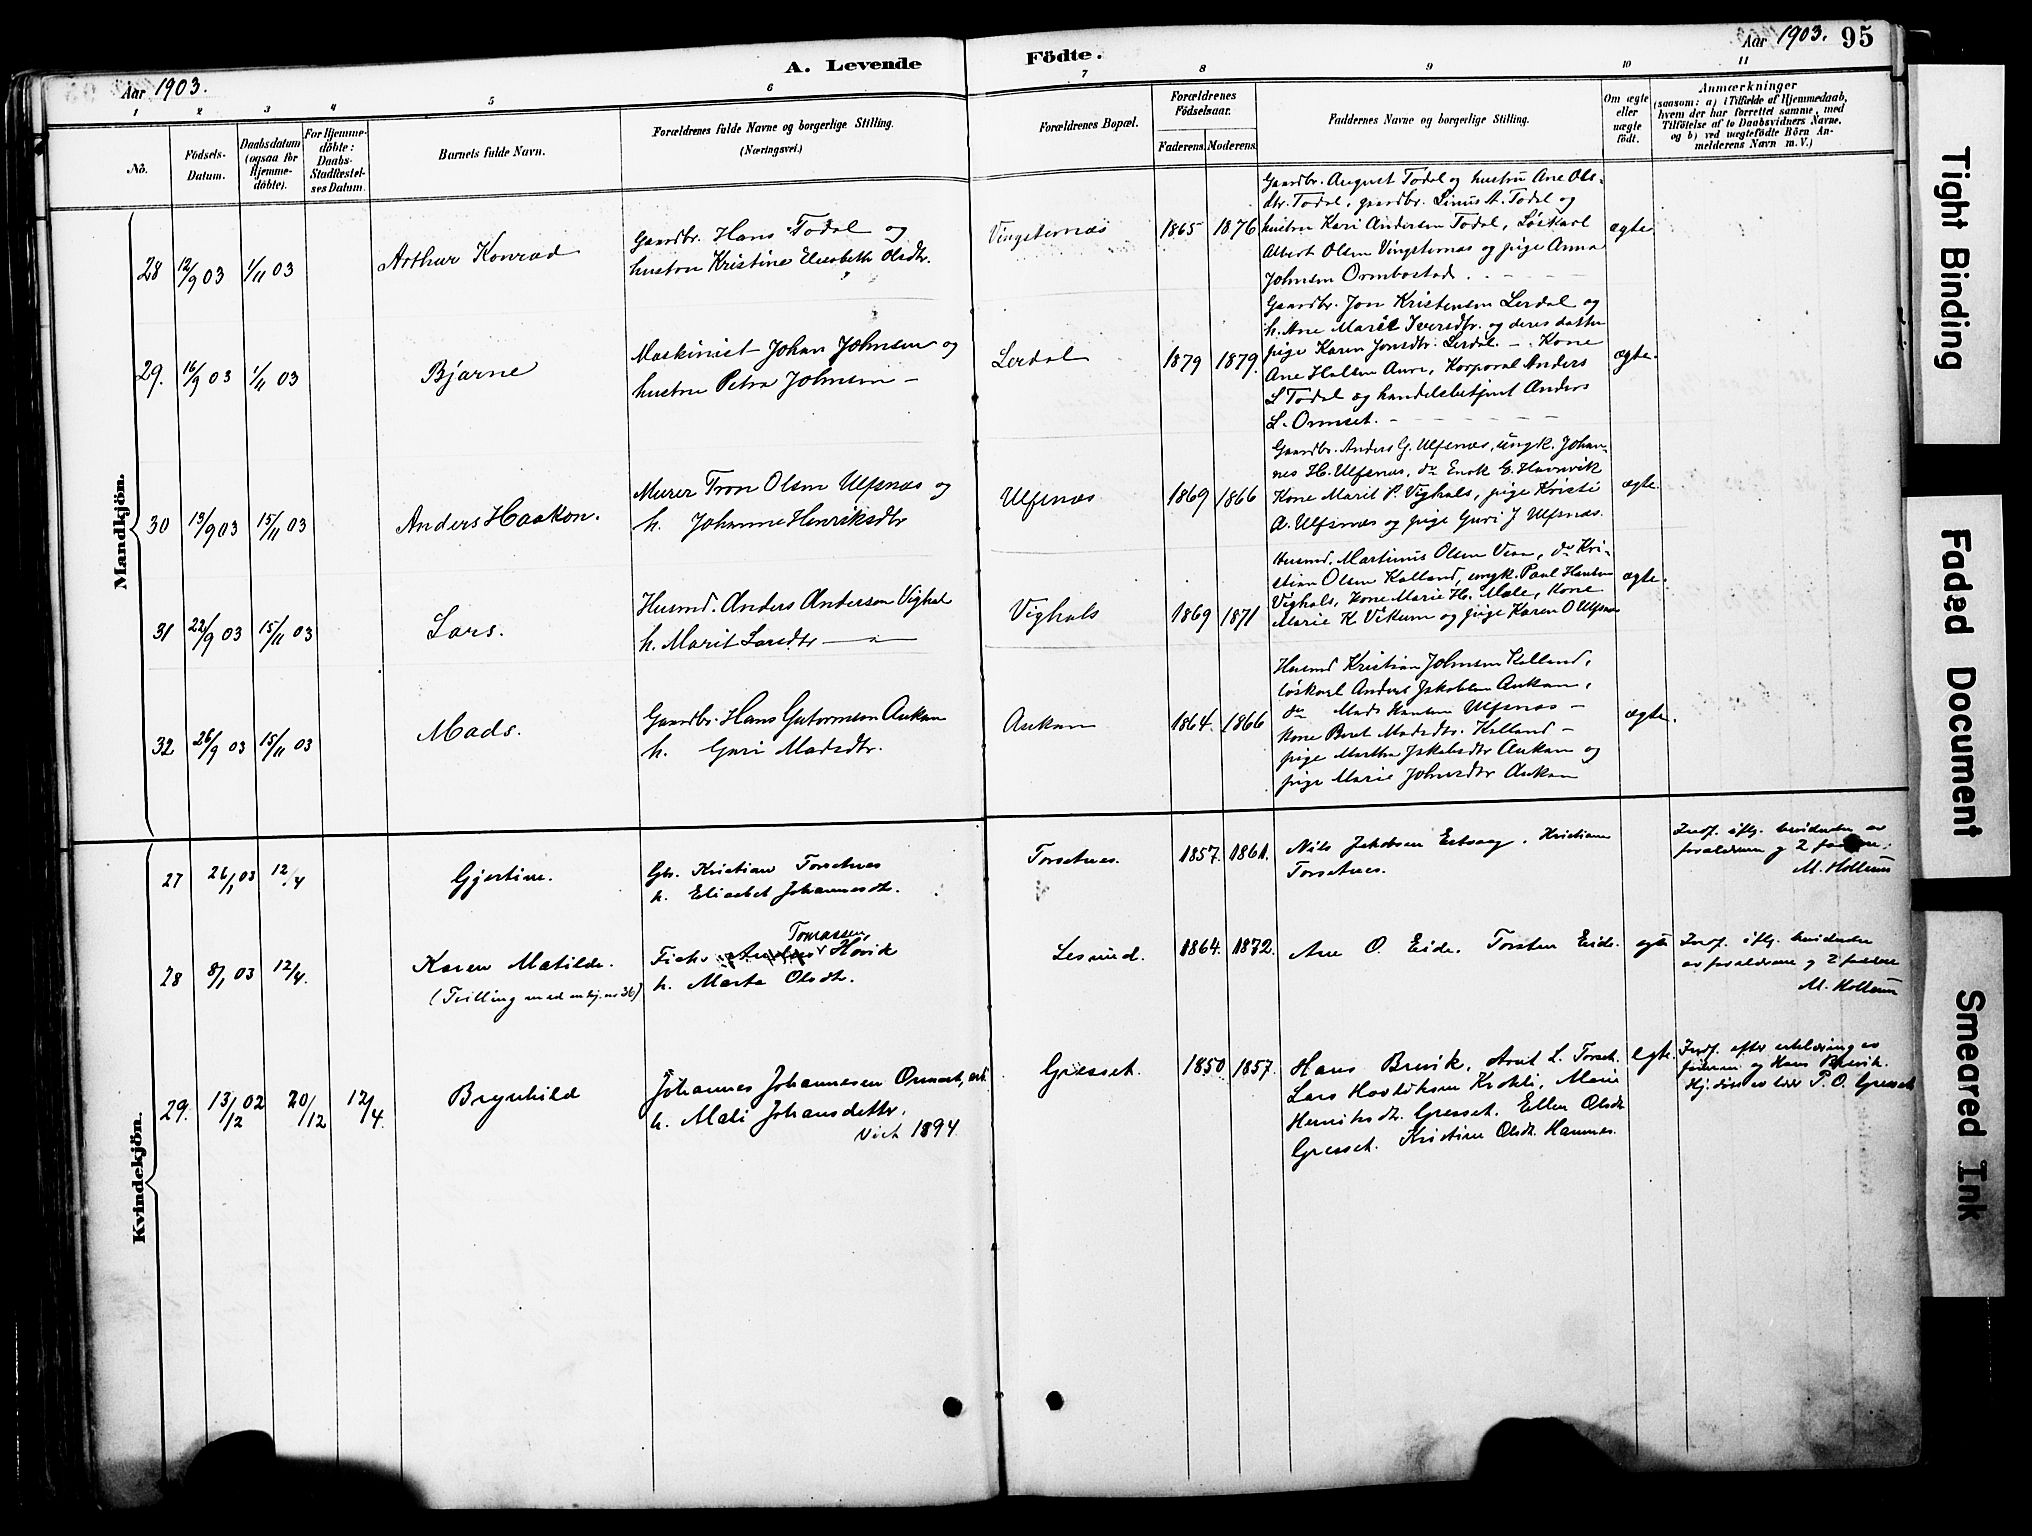 Aar 1903.
A. Levende
Födte.
Aar 1903.
95
1
2
3
4
5
6
7
8
9
10
11
No.
Födsels-
Datum.
Daabsdatum
(ogsaa for
Hjemme-
döbte).
For Hjemme-
döbte:
Daabs-
Stadfæstel-
ses Datum.
Barnets fulde Navn.
Forældrenes fulde Navne og borgerlige Stilling.
(Næringsvei.)
Forældrenes Bopæl.
Forældrenes
Födselsaar.
Faderens.
Moderens.
Faddernes Navne og borgerlige Stilling.
Om ægte
eller
uægte
födt.
Anmærkninger
(saasom: a) i Tilfælde af Hjemmedaab,
hvem der har forrettet samme, med
Tilföielse af to Daabsvidners Navne,
og b) ved uægtefödte Börn An-
melderens Navn m. V.)
Mandkjön.
28
12/9 03
1/11 03
Arthur Konrad
Gaardbr. Hans Todal og
hustru Kristine Elisabeth Olsdtr.
Vingsternæs
1865
1876
Gaardbr. August Todal og hustru Ane Ols-
dtr. Todal, gaardbr. Linus A. Todal og
hustru Kari Andersen Todal, Löskarl
Albert Olsen Vingsternæs og pige Anna
Johnsen Ormbostad.
ægte
29.
16/9 03
1/11 03
Bjarne
Maskinist Johan Johnsen og
hustru Petra Johnsen -
Lerdal
1879
1879.
Gaardbr. Jon Kristensen Lerdal og
h. Ane Marit Iversdtr. og deres datter
pige Karen Jonsdtr. Lerdal. - Kone
Ane Halsen Aure, Korporal Anders
L Todal og handelsbetjent Anders
L. Ormset. -
ægte.
30
13/9 03
15/11 03
Anders Haakon.
Murer Tron Olsen Ulfsnæs og
h. Johanne Henriksdtr
Ulfsnæs
1869
1866
Gaardbr. Anders G. Ulfsnæs, ungk. Johan-
nes H. Ulfsnæs, do Enok E. Havnvik
Kone Marit P. Vighals, pige Kristi
A. Ulfsnæs og pige Guri J Ulfsnæs.
ægte.
31
22/9 03
15/11 03
Lars.
Husmd. Anders Anderson Vighals
h. Marit Larsdtr
Vighals
1869
1871
Husmd. Martinus Olsen Vean, do Kri-
stian Olsen Kalland, ungk. Paul Hansen
Vighals, Kone Marie H. Mæle, Kone
Marie K. Vikum og pige Karen O Ulfsnæs
ægte.
32
26/9 03
15/11 03
Mads.
Gaardbr. Hans Guttormsen Aukan
h. Guri Madsdtr.
Aukan
1864.
1866
Husmd Kristian Johnsen Kalland,
löskarl Anders Jakobsen Aukan,
do Mads Hansen Ulfsnæs -
Kone Beret Madsdtr. Kalland -
pige Martha Jakobsdtr Aukan og
pige Marie Johnsdtr Aukan
ægte.
Kvindekjön.
27
26/1 03
12/4
Gjertine.
Gbr. Kristian Torsetnes
h. Elisabet Johannesdt.
Torsetnes.
1857.
1861.
Nils Jakobsen Kristiane
Torsetnes.
Indf. iflg. bevidnelse av
forældrene og 2 faddere.
M. Hollum
28
8/1 03
12/4.
Karen Matilde.
(Tvilling med mkj. no 36)
Tomassen,
Fisker Hovik
h. Marta Olsdt.
Lesund.
1864.
1872.
Ane O. Eide. Torsten Eide.
egte
Indf. iflg. bevidnelse
av forældrene og 2 faddere
M. Hollum
29.
13/12 02
20/12
12/4.
Brynhild
Johannes Johannesen Ormset,
h. Mali Johansdatter.
Viet 1894
Gresset.
1850
1857.
Hans Brevik. Arnt L. Torset.
Lars Krokli, Marie
Henriksdt. Gresset. Ellen Olsdt
Gresset. Kristine Olsdt. Hamnes.
egte.
Indf. efter erklæring av
faderen og Hans Brevik.
Hj. döbt av lærer P. O. Gresset
Tight Binding
Faded Document
Smeared Ink